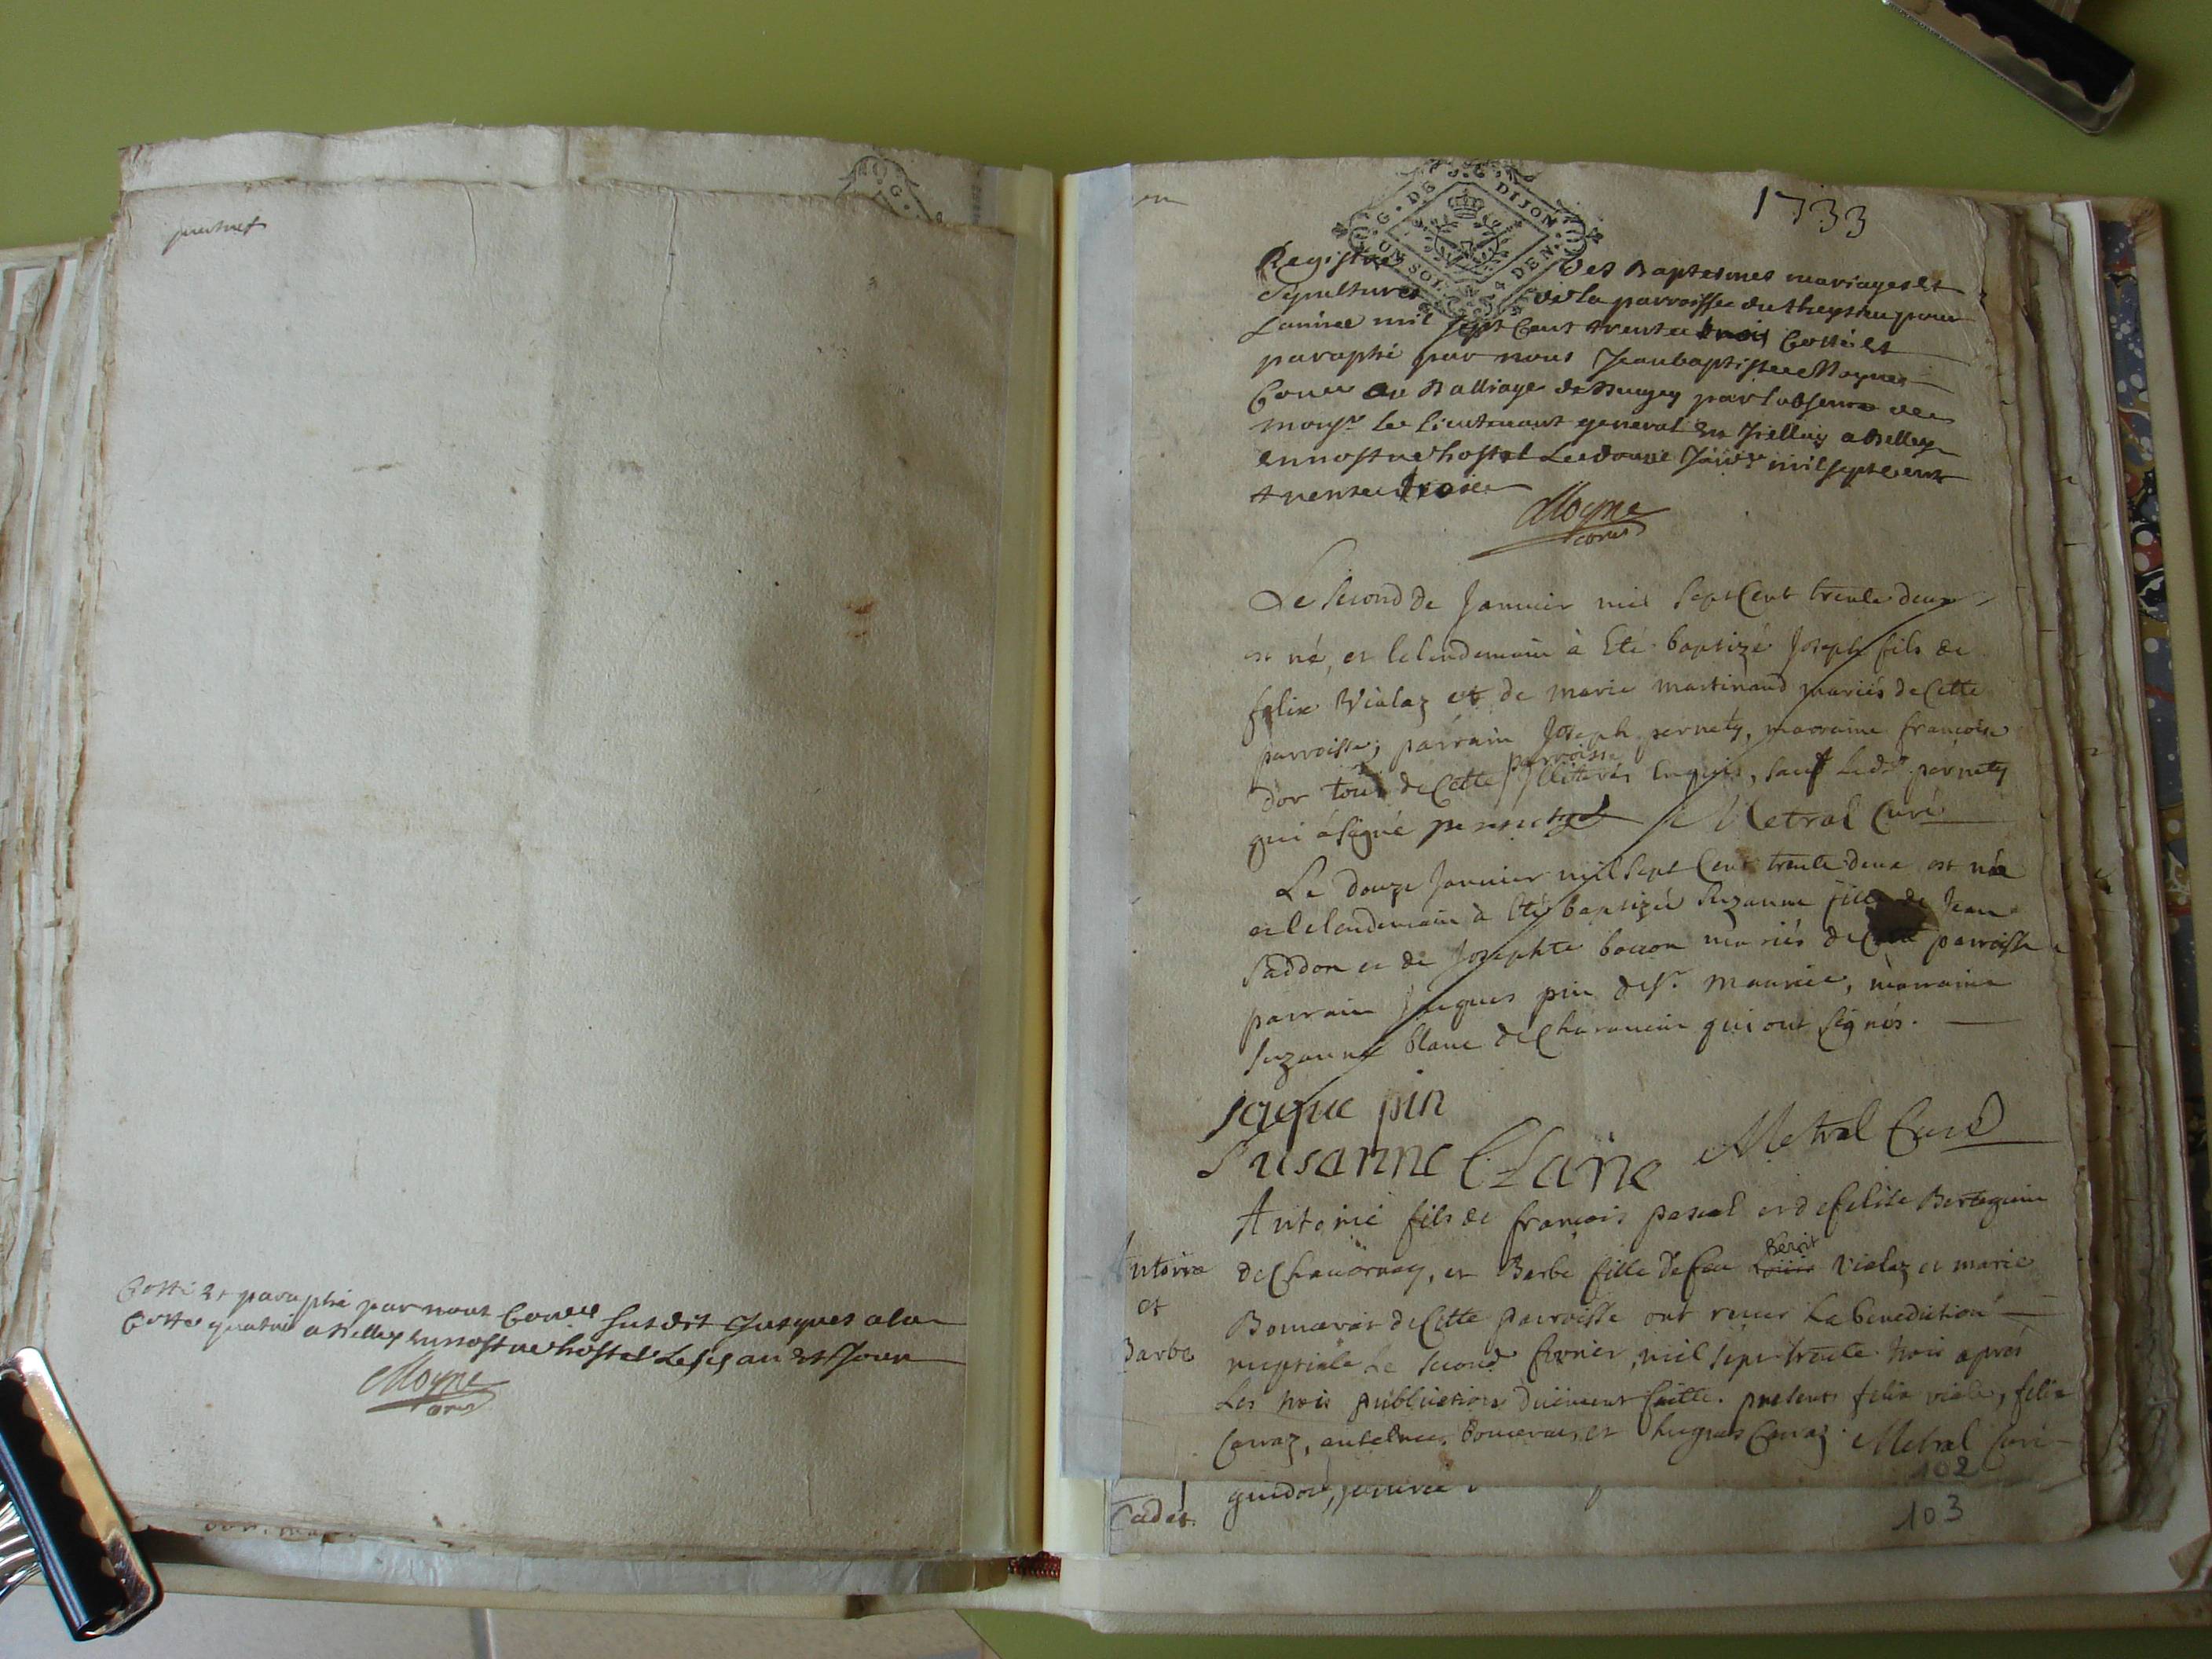 Cotté et paraphé par nous Coner susdit jusques a la
Cotte quatre a Belley en nostre hostel les an et jour
Moyne
coner
1733
G. DE DIJON
UN SOL 4 DEN.
Registre des Baptesmes mariages et
sepultures de la parroisse du pour
L'année mil sept cent trente trois Cotté et
paraphé par nous Jean baptiste Moyne
Coner au Balliage de Bugey par l'absence de
monsr le lieutenant general a Belley
en nostre hostel le douze mil sept cent
trente trois
Moyne
coner
Le second de Janvier mil sept Cent trente deux
est né, et le lendemain à Eté baptizé Joseph fils de
felix Vialaz et de marie martinand mariés de Cette
parroisse; parrain Joseph pernety, marraine francoise
Dor tous de Cette parroisse illiterés Enquis, sauf led. pernety
qui à signé pernety Metral Curé
Le douze Janvier mil sept Cent trente deux est née
et le lendemain à Eté baptizée Suzanne fille de Jean
saddon et de Josephte bocon mariés de Cette parroisse
parrain Jacques pin de St. Maurice, marraine
Suzanne blanc de Charancin qui ont signés.
jaque pin
Susanne Metral Curé
Antoine
et
Barbe
Antoine fils de francois pascal et de felise
de Chavornay, et Barbe fille de feu Benoit Vialaz et marie
de Cette parroisse ont receu la benediction
nuptiale le second fevrier, mil sept trente trois aprés
Les trois publications düement faitte. presents felix viala, felix
Carraz, et hugues Carraz. Metral Curé
102
Cadet.
103